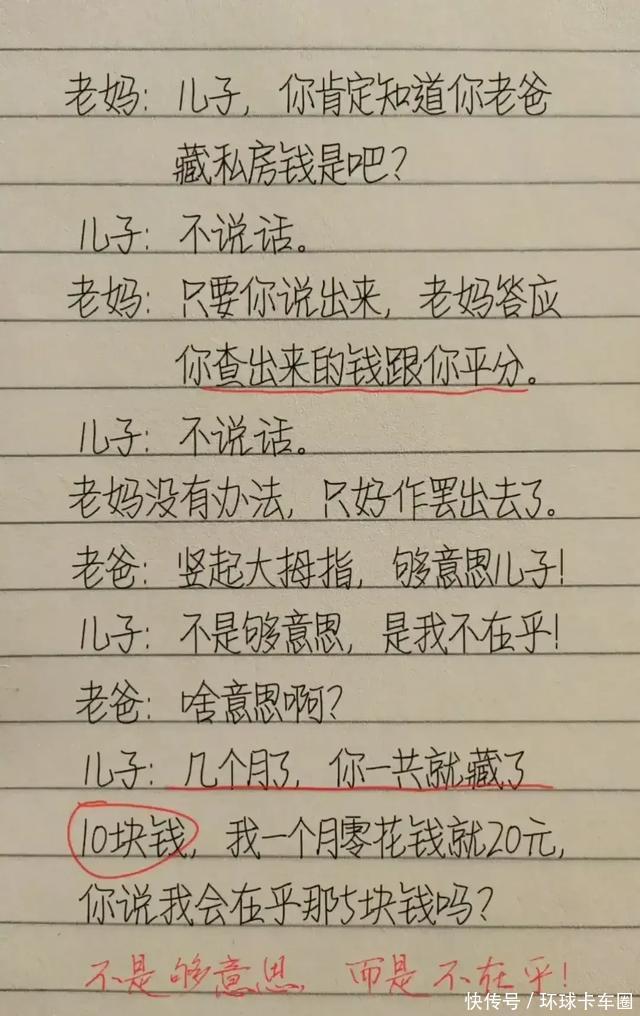 老妈：儿子，你肯定知道你老爸
藏私房钱是吧？
儿子：不说话。
老妈：只要你说出来，老妈答应
你查出来的钱跟你平分。
儿子：不说话。
老妈没有办法，只好作罢出去了。
老爸：竖起大拇指，够意思儿子！
儿子：不是够意思，是我不在乎！
老爸：啥意思啊？
儿子：几个月了，你一共就藏了
10块钱，我一个月零花钱就20元，
你说我会在乎那5块钱吗？
不是够意思，而是不在乎！
快传号/环球卡车圈